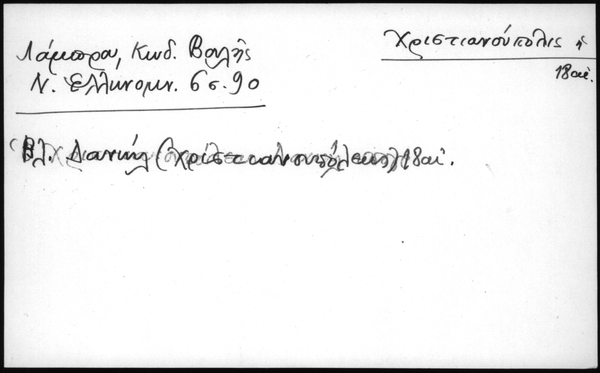 Λάμπρου, Κωδ. Βουλῆς
Ν. Ἑλληνομν. 6 σ. 90
Χριστιανούπολις ἡ
18 αἰ.
Βλ. Δανιήλ (Χριστιανουπόλεως) 18 αἰ.